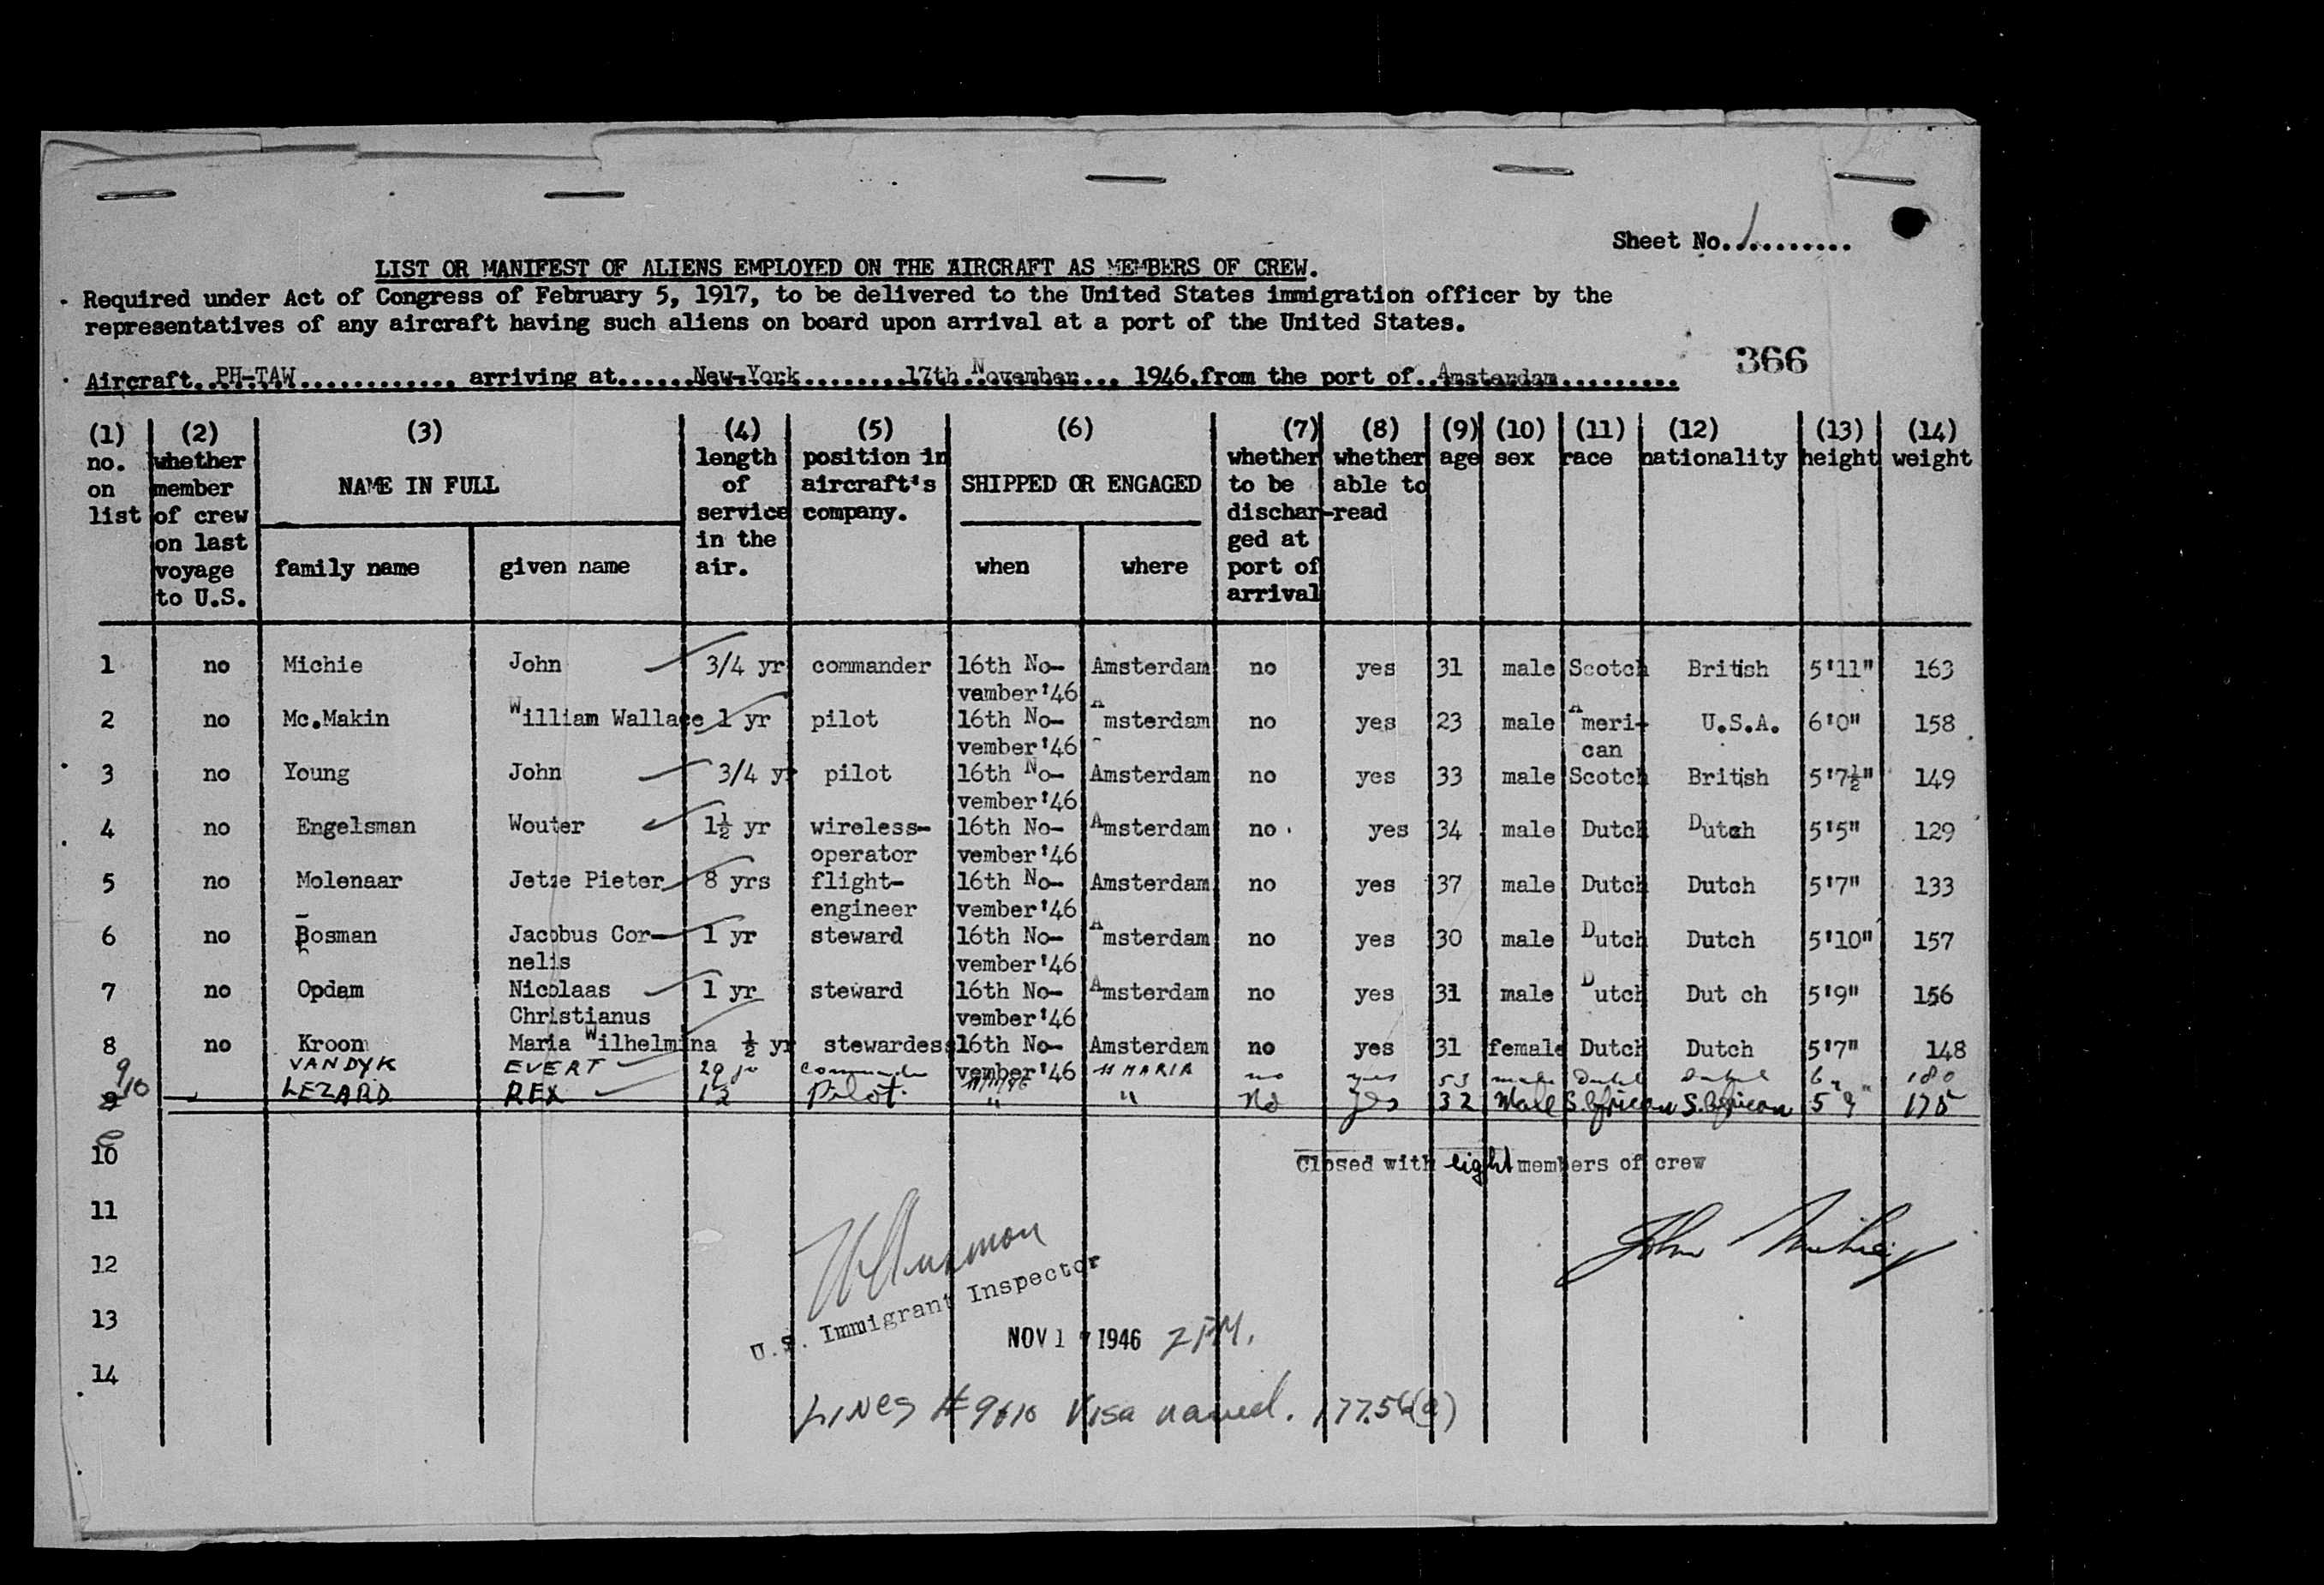 Sheet No. 1..........
LIST OR MANIFEST OF ALIENS EMPLOYED ON THE AIRCRAFT AS MEMBERS OF CREW.
Required under Act of Congress of February 5, 1917, to be delivered to the United States immigration officer by the
representatives of any aircraft having such aliens on board upon arrival at a port of the United States.
366
Aircraft..PH-TAW............. arriving at......New-York........17th November... 1946.from the port of..Amsterdam..........
(1) (2) (3) (4) (5) (6) (7) (8) (9) (10) (11) (12) (13) (14)
no. on list
whether member of crew on last voyage to U.S.
NAME IN FULL
family name given name
length of service in the air.
position in aircraft's company.
SHIPPED OR ENGAGED
when where
whether to be dischar-ged at port of arrival
whether able to read
age sex race nationality height weight
1 no Michie John 3/4 yr commander 16th No- Amsterdam no yes 31 male Scotch British 5'11" 163
vamber'46
2 no Mc.Makin William Wallace 1 yr pilot 16th No- Amsterdam no yes 23 male Ameri- U.S.A. 6'0" 158
vember'46 can
3 no Young John 3/4 yr pilot 16th No- Amsterdam no yes 33 male Scotch British 5'7½" 149
vember'46
4 no Engelsman Wouter 1½ yr wireless- 16th No- Amsterdam no yes 34 male Dutch Dutch 5'5" 129
operator vember'46
5 no Molenaar Jetze Pieter 8 yrs flight- 16th No- Amsterdam no yes 37 male Dutch Dutch 5'7" 133
engineer vember'46
6 no Bosman Jacobus Cor- 1 yr steward 16th No- Amsterdam no yes 30 male Dutch Dutch 5'10" 157
nelis vember'46
7 no Opdam Nicolaas 1 yr steward 16th No- Amsterdam no yes 31 male Dutch Dut ch 5'9" 156
Christianus vember'46
8 no Kroon Maria Wilhelmina ½ yr stewardess 16th No- Amsterdam no yes 31 female Dutch Dutch 5'7" 148
vember'46
9 VAN DYK EVERT 29 commander MARIA no yes 53 male Dutch Dutch 6 180
10 LEZARD REX 12 Pilot " " No Yes 32 Male S.African S.African 5 9" 175
10 Closed with eight members of crew
11
12 John Michie
U.S. Immigrant Inspector
13 NOV 17 1946 2 PM.
14
LINES # 9&10 Visa waived. 177.56(a)